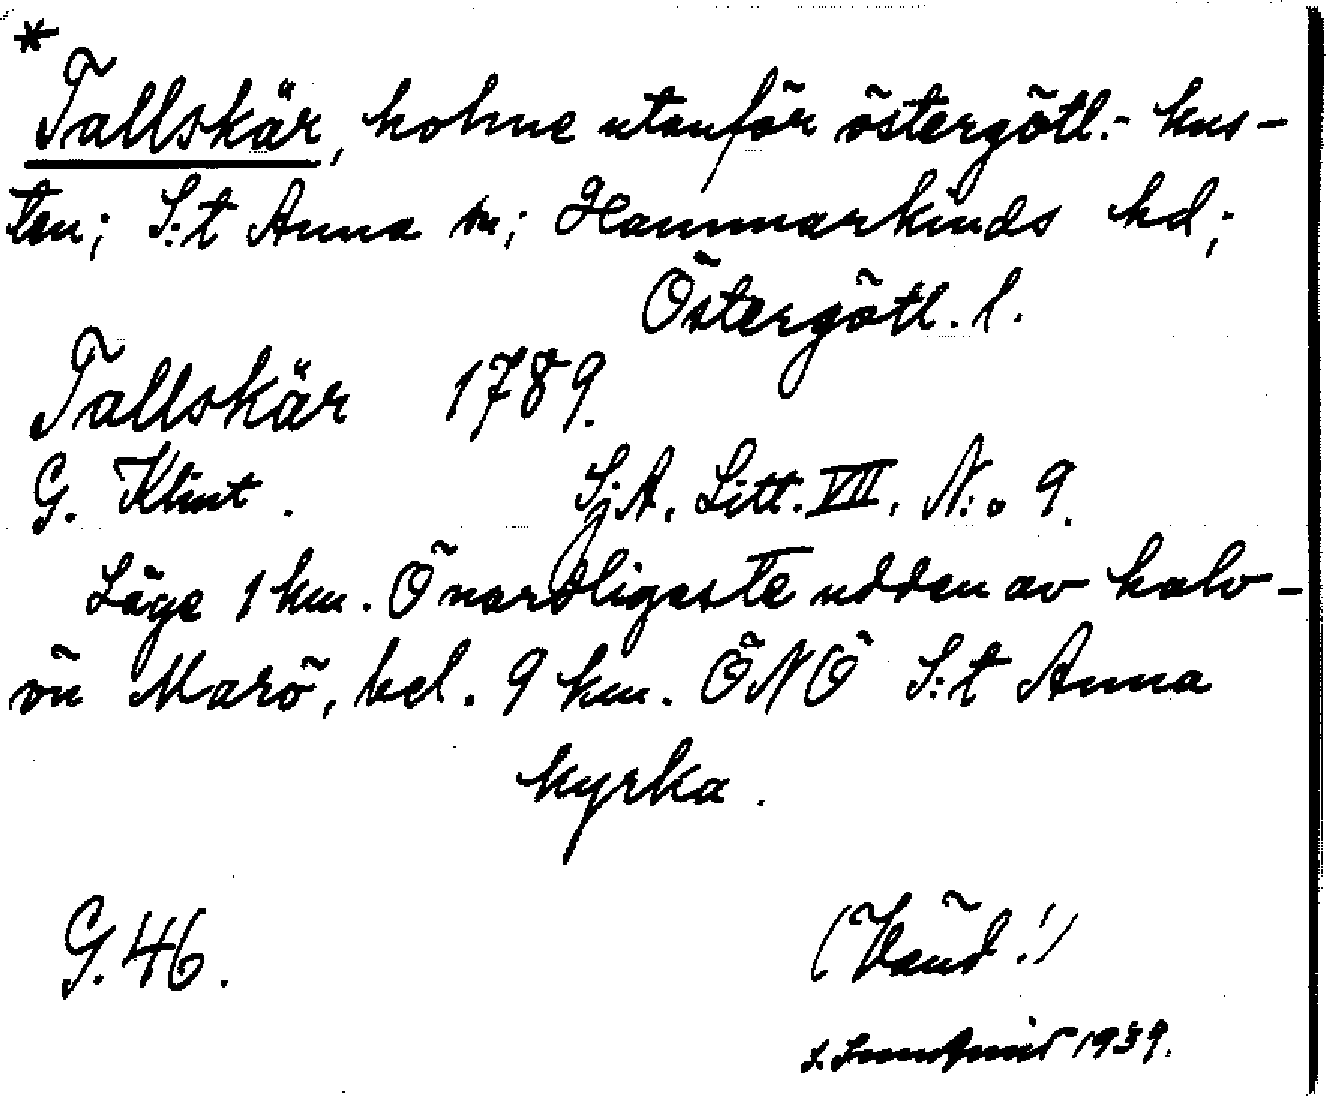 *
Tallskär, holme utanför östergötl.- kus-
ten; S:t Anna sn; Hammarkinds hd;
Östergötl. l.
Tallskär 1789.
G. Klint. Sj.A. Litt. VII. N:o 9.
Läge 1 km. Ö nordligaste udden av halv-
ön Marö, bel. 9 km. ÖNÖ S:t Anna
kyrka.
G. 46. (Vänd!)
1939.